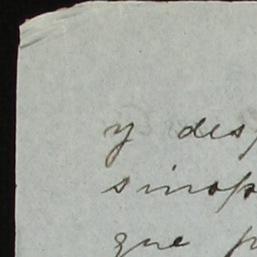 y desp
sinop
que p